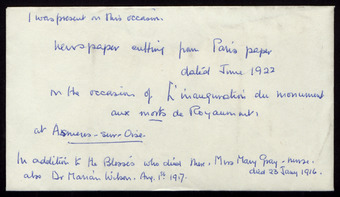 I was present on this occasion.
Newspaper cutting from Paris paper
dated June 1922
on the occasion of L'inauguration du monument
aux morts de Royaumont.
at Asnieres-sur-Oise.
In addition to the Blessés who died there, Mrs Mary Gray - nurse.
died 23 Jany 1916.
also Dr Marian Wilson. Aug. 1st 1917.